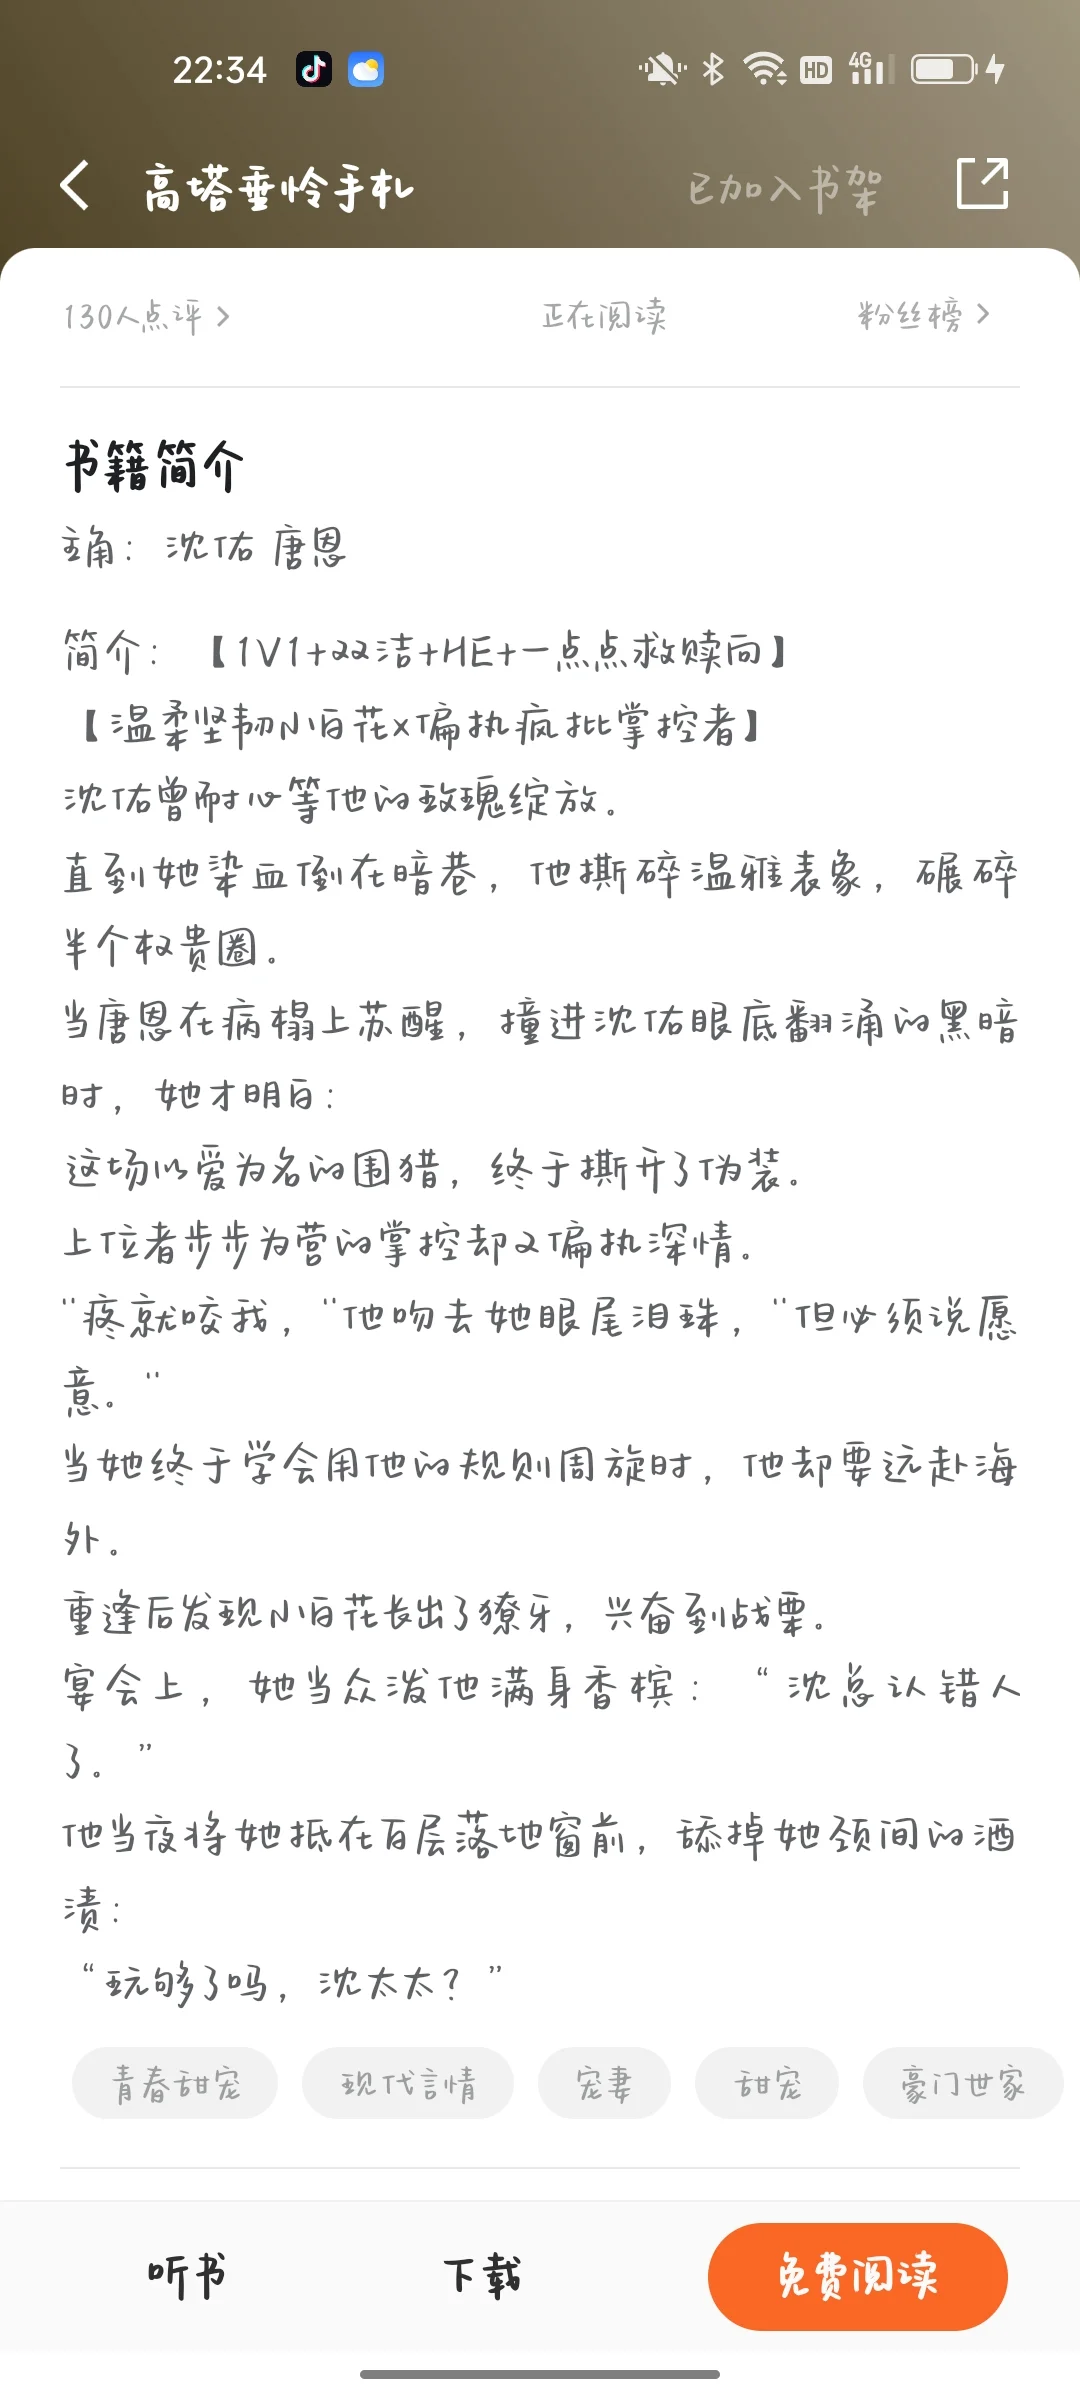 22:34
HD 4G
高塔垂怜手札 已加入书架
130人点评 正在阅读 粉丝榜
书籍简介
主角：沈佑 唐恩
简介：【1V1+双洁+HE+一点点救赎向】
【温柔坚韧小白花x偏执疯批掌控者】
沈佑曾耐心等他的玫瑰绽放。
直到她染血倒在暗巷，他撕碎温雅表象，碾碎
半个权贵圈。
当唐恩在病榻上苏醒，撞进沈佑眼底翻涌的黑暗
时，她才明白：
这场以爱为名的围猎，终于撕开了伪装。
上位者步步为营的掌控却又偏执深情。
"疼就咬我，"他吻去她眼尾泪珠，"但必须说愿
意。"
当她终于学会用他的规则周旋时，他却要远赴海
外。
重逢后发现小白花长出了獠牙，兴奋到战栗。
宴会上，她当众泼他满身香槟：“沈总认错人
了。”
他当夜将她抵在百层落地窗前，舔掉她颈间的酒
渍：
“玩够了吗，沈太太？”
青春甜宠 现代言情 宠妻 甜宠 豪门世家
听书 下载 免费阅读